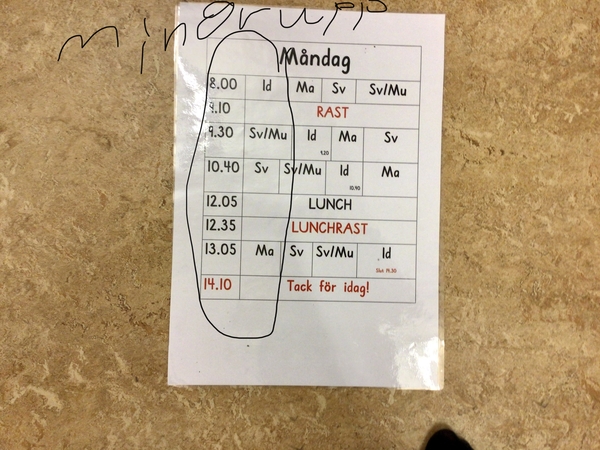 min grupp
Måndag
8.00 Id Ma Sv Sv/Mu
9.10 RAST
9.30 Sv/Mu Id 9.20 Ma Sv
10.40 Sv Sv/Mu Id 10.90 Ma
12.05 LUNCH
12.35 LUNCHRAST
13.05 Ma Sv Sv/Mu Id
Slut 14.30
14.10 Tack för idag!